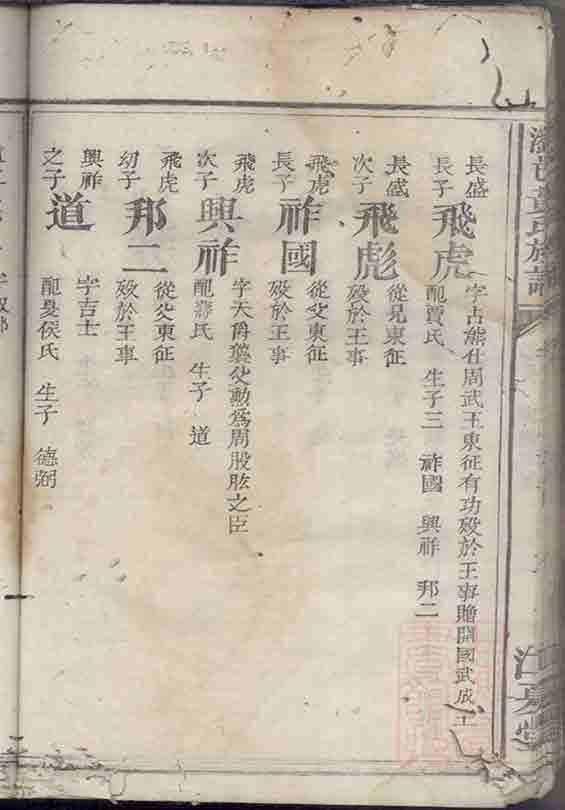 邑黃氏族譜
江夏堂
長盛
長子
飛虎
字古熊仕周武王東征有功歿於王事贈開國武成王
配賈氏 生子三 祚國 興祚 邦二
長盛
次子
飛彪
從兄東征
歿於王事
飛虎
長子
祚國
從父東征
歿於王事
飛虎
次子
興祚
字天爵襲父勳為周股肱之臣
配氏 生子 道
飛虎
幼子
邦二
從父東征
歿於王事
興祚
之子
道
字吉士
配夏侯氏 生子 德弼